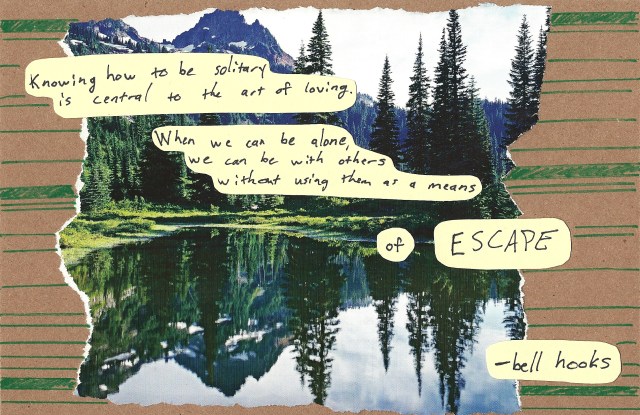 Knowing how to be solitary
is central to the art of loving.
When we can be alone,
we can be with others
without using them as a means
of ESCAPE
–bell hooks